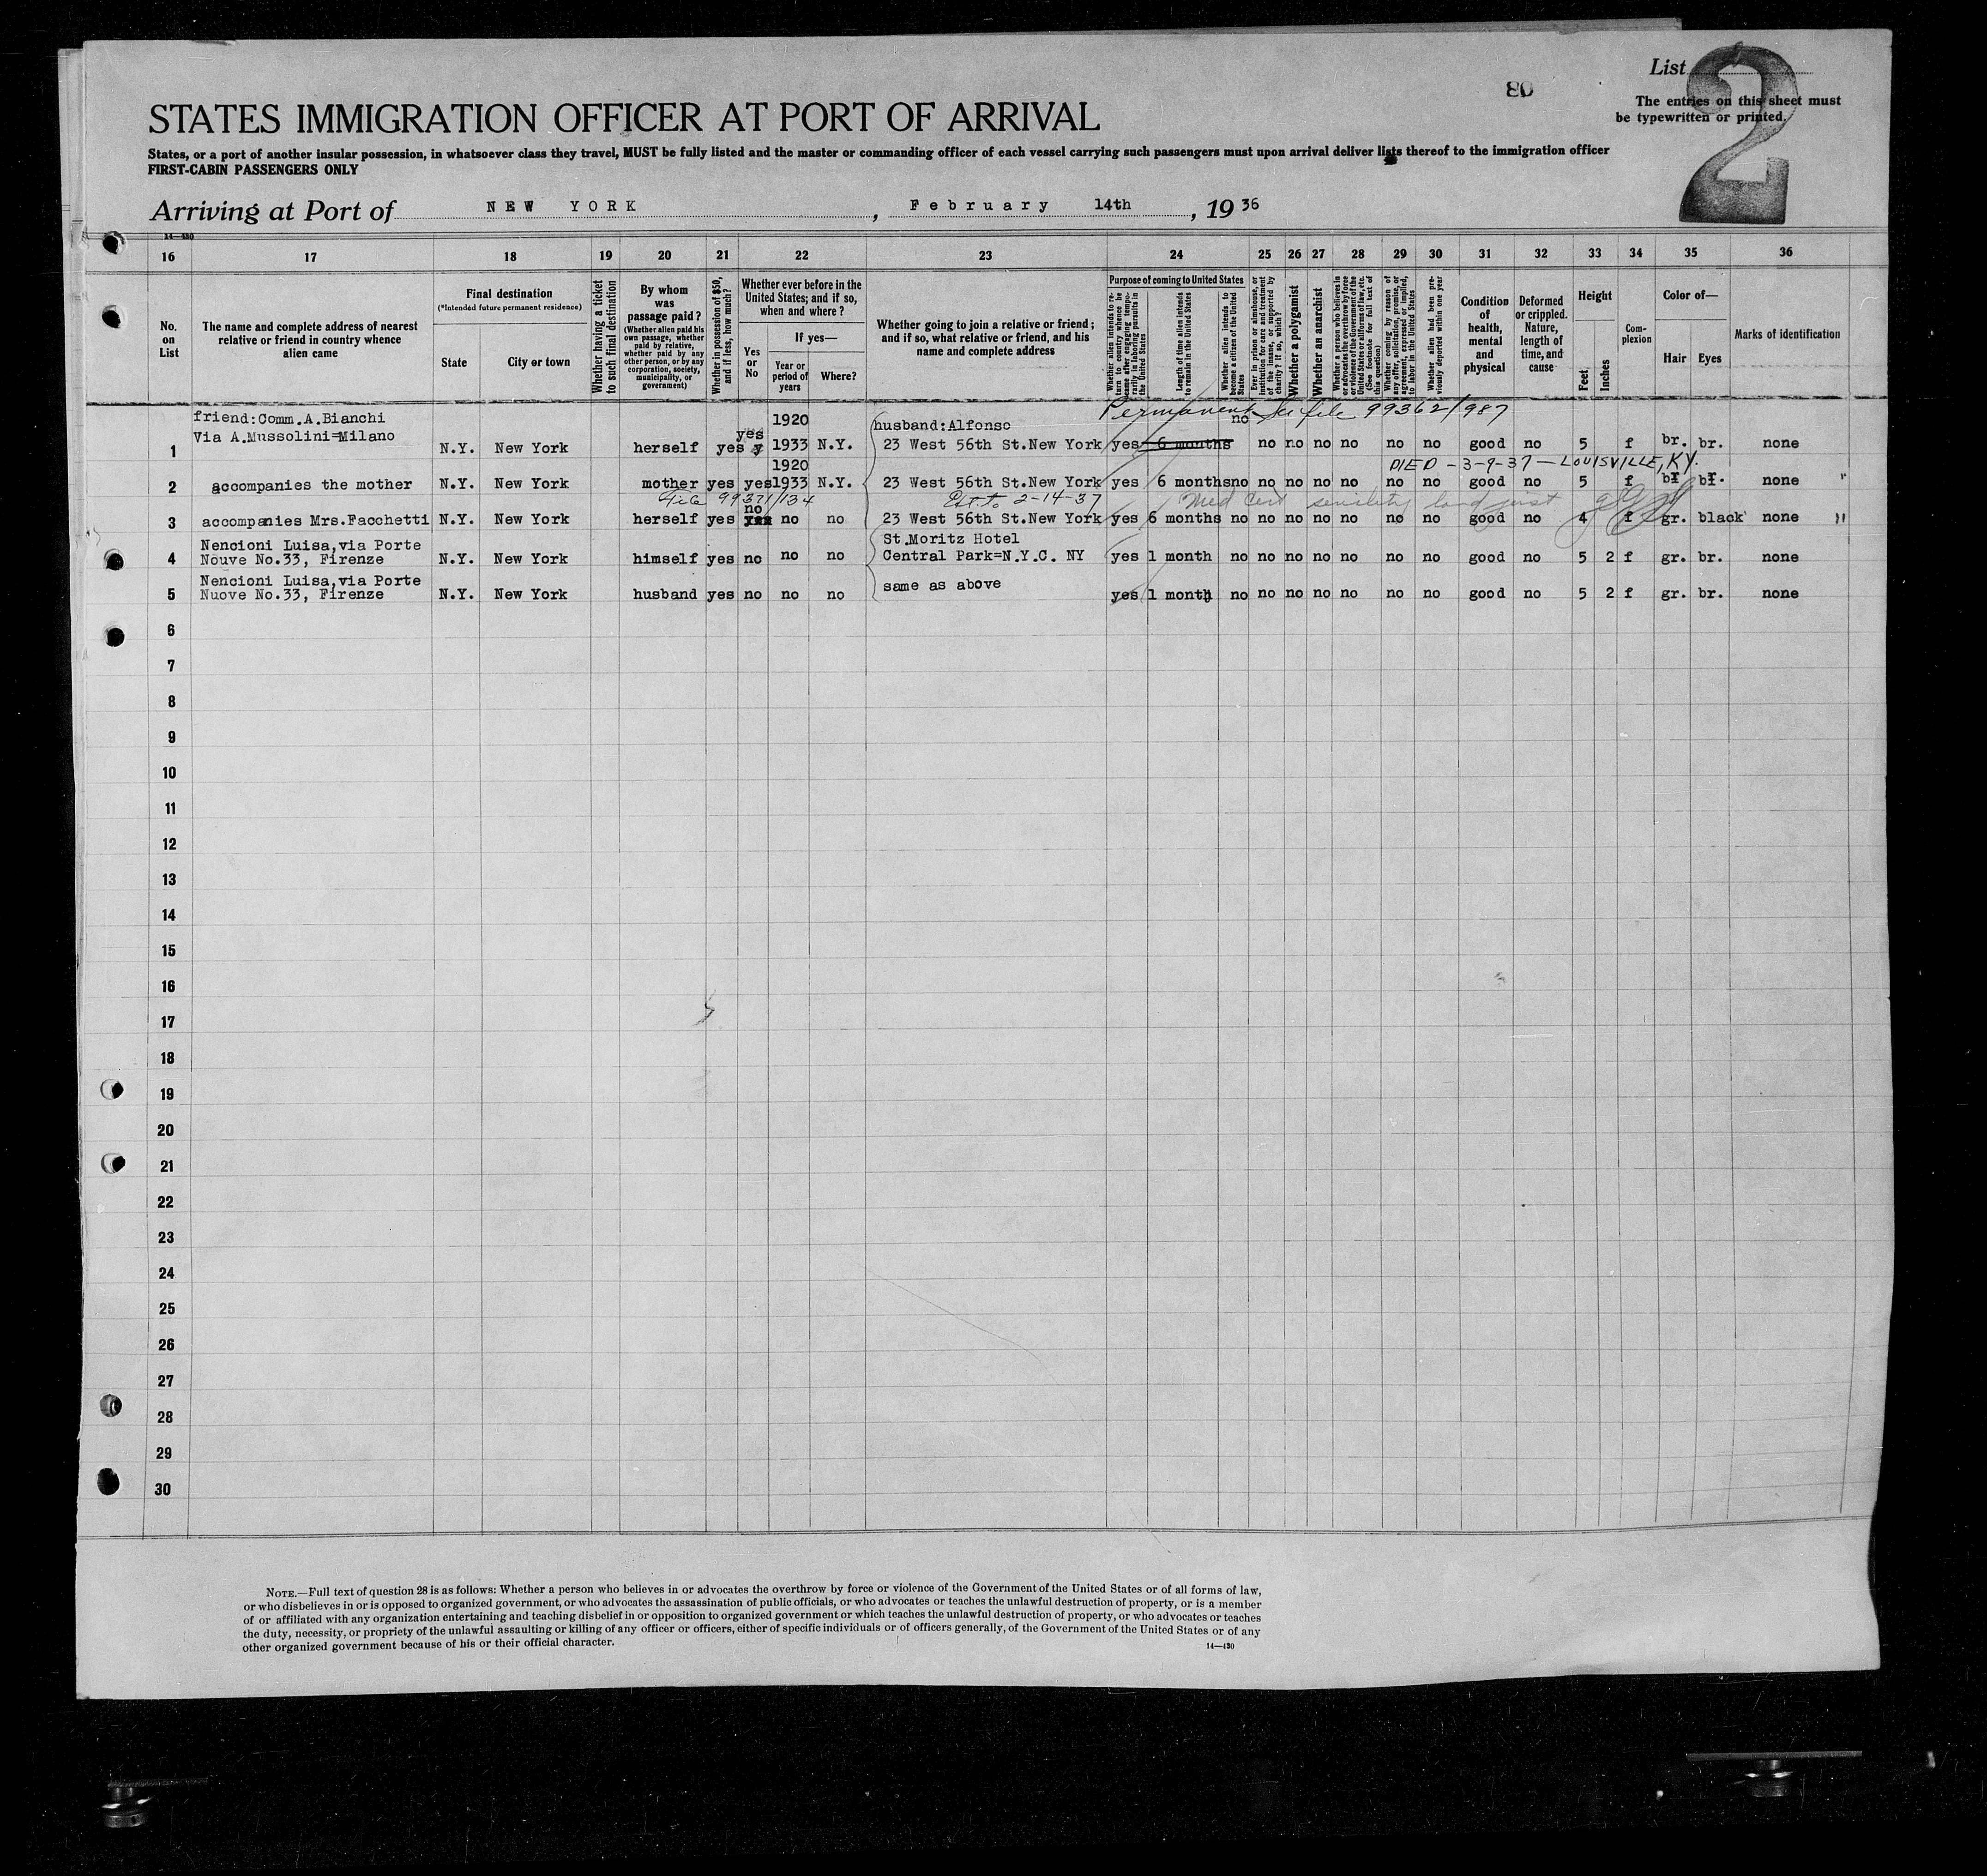 List 2
80
The entries on this sheet must
be typewritten or printed.
STATES IMMIGRATION OFFICER AT PORT OF ARRIVAL
States, or a port of another insular possession, in whatsoever class they travel, MUST be fully listed and the master or commanding officer of each vessel carrying such passengers must upon arrival deliver lists thereof to the immigration officer
FIRST-CABIN PASSENGERS ONLY
Arriving at Port of NEW YORK, February 14th, 1936
14—430
16 17 18 19 20 21 22 23 24 25 26 27 28 29 30 31 32 33 34 35 36
No. on List
The name and complete address of nearest relative or friend in country whence alien came
Final destination
(*Intended future permanent residence)
State
City or town
Whether having a ticket to such final destination
By whom was passage paid?
(Whether alien paid his own passage, whether paid by relative, whether paid by any other person, or by any corporation, society, municipality, or government)
Whether in possession of $50, and if less, how much?
Whether ever before in the United States; and if so, when and where?
Yes or No
If yes—
Year or period of years
Where?
Whether going to join a relative or friend; and if so, what relative or friend, and his name and complete address
Purpose of coming to United States
Whether alien intends to return to country whence he came after engaging temporarily in laboring pursuits in the United States
Length of time alien intends to remain in the United States
Whether alien intends to become a citizen of the United States
Ever in prison or almshouse, or institution for care and treatment of the insane, or supported by charity? If so, which?
Whether a polygamist
Whether an anarchist
Whether a person who believes in or advocates the overthrow by force or violence of the Government of the United States or all forms of law, etc. (See footnote for full text of this question)
Whether coming by reason of any offer, solicitation, promise, or agreement, expressed or implied, to labor in the United States
Whether alien had been previously deported within one year
Condition of health, mental and physical
Deformed or crippled. Nature, length of time, and cause
Height
Feet
Inches
Complexion
Color of—
Hair
Eyes
Marks of identification
Permanent See file 99362/987
friend:Comm.A.Bianchi 1920 husband:Alfonso no
Via A.Mussolini=Milano yes
1 N.Y. New York herself yes y 1933 N.Y. 23 West 56th St.New York yes 6 months no no no no no no good no 5 f br. br. none
1920 DIED - 3-9-37 - LOUISVILLE, KY.
2 accompanies the mother N.Y. New York mother yes yes 1933 N.Y. 23 West 56th St.New York yes 6 months no no no no no no no good no 5 f br br. none "
File 99371/134 Ext. to 2-14-37 Med Cert senility
no
3 accompanies Mrs.Facchetti N.Y. New York herself yes yes no no 23 West 56th St.New York yes 6 months no no no no no no no good no 4 f gr. black none "
Nencioni Luisa,via Porte St.Moritz Hotel
4 Nouve No.33, Firenze N.Y. New York himself yes no no no Central Park=N.Y.C. NY yes 1 month no no no no no no no good no 5 2 f gr. br. none
Nencioni Luisa,via Porte same as above
5 Nuove No.33, Firenze N.Y. New York husband yes no no no yes 1 month no no no no no no no good no 5 2 f gr. br. none
6
7
8
9
10
11
12
13
14
15
16
17
18
19
20
21
22
23
24
25
26
27
28
29
30
NOTE.—Full text of question 28 is as follows: Whether a person who believes in or advocates the overthrow by force or violence of the Government of the United States or of all forms of law,
or who disbelieves in or is opposed to organized government, or who advocates the assassination of public officials, or who advocates or teaches the unlawful destruction of property, or is a member
of or affiliated with any organization entertaining and teaching disbelief in or opposition to organized government or which teaches the unlawful destruction of property, or who advocates or teaches
the duty, necessity, or propriety of the unlawful assaulting or killing of any officer or officers, either of specific individuals or of officers generally, of the Government of the United States or of any
other organized government because of his or their official character.
14—430